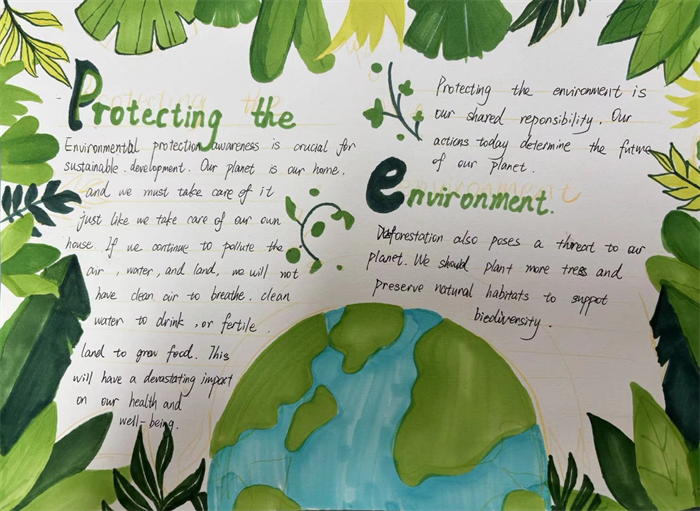 Protecting the
Environmental protection awareness is crucial for
sustainable. development. Our planet is our home.
and we must take care of it
just like we take care of our own
house. If we continue to pollute the
air, water, and land, we will not
have clean air to breathe. clean
water to drink, or fertile.
land to grow food. This
will have a devastating impact
on our health and
well-being.
Protecting the environment is
our shared reponsibility. Our
actions today determine the future
of our planet.
environment.
Deforestation also poses a threat to our
planet. We should plant more trees and
preserve natural habitats to suppot
biediversity.